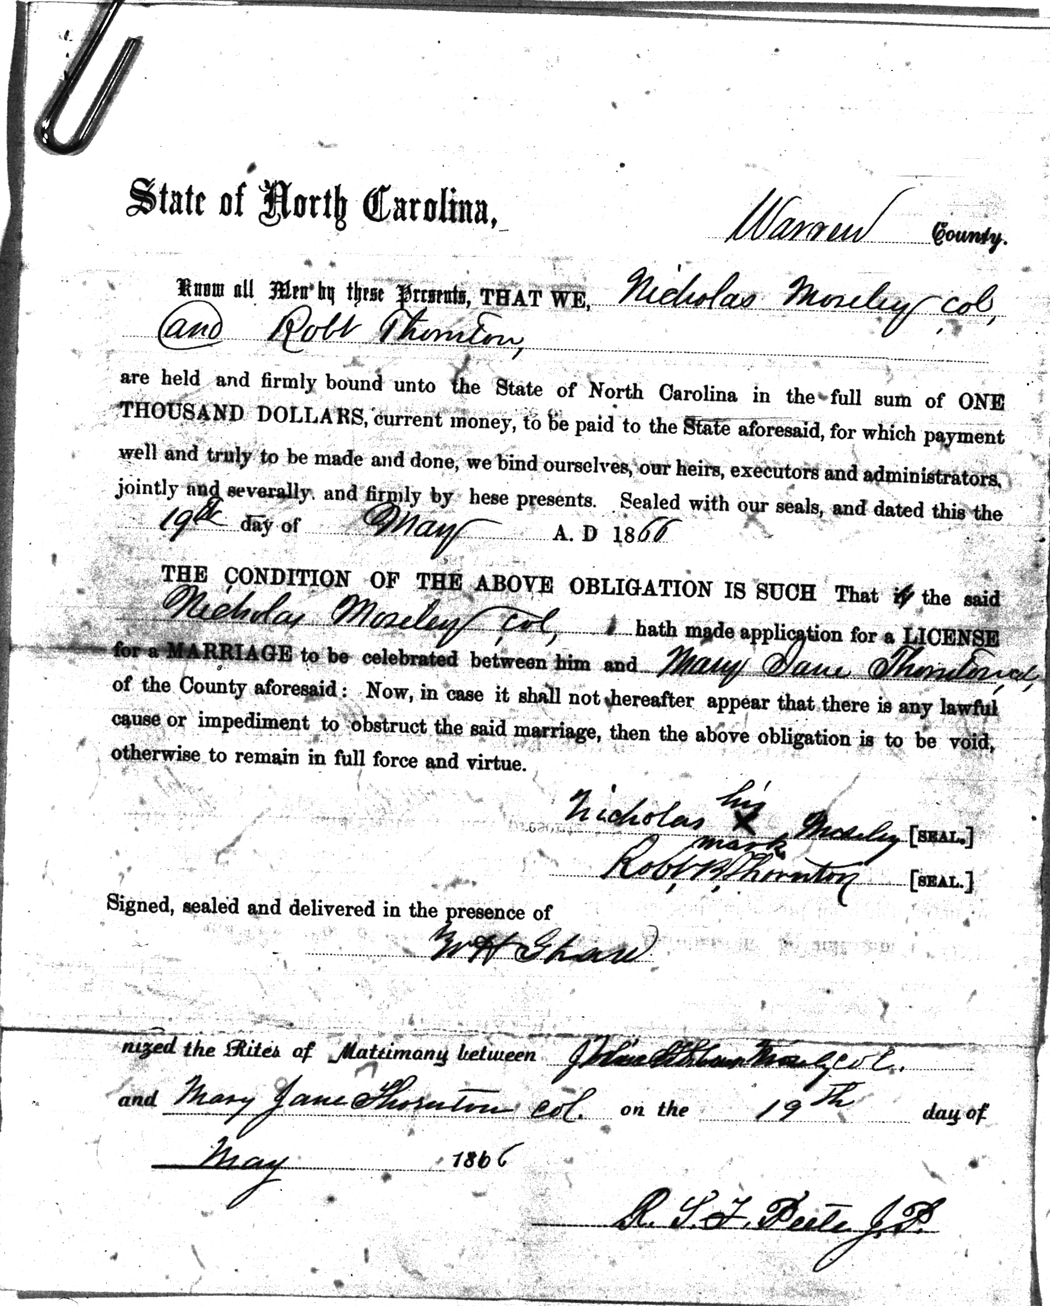 State of North Carolina,
Warren County.
Know all Men by these Presents, THAT WE, Nicholas Moseley col,
and Robt Thornton,
are held and firmly bound unto the State of North Carolina in the full sum of ONE
THOUSAND DOLLARS, current money, to be paid to the State aforesaid, for which payment
well and truly to be made and done, we bind ourselves, our heirs, executors and administrators,
jointly and severally. and firmly by hese presents. Sealed with our seals, and dated this the
19th day of May A. D 1866
THE CONDITION OF THE ABOVE OBLIGATION IS SUCH That if the said
Nicholas Moseley col, hath made application for a LICENSE
for a MARRIAGE to be celebrated between him and Mary Jane Thornton col,
of the County aforesaid: Now, in case it shall not hereafter appear that there is any lawful
cause or impediment to obstruct the said marriage, then the above obligation is to be void,
otherwise to remain in full force and virtue.
his
Nicholas X Moseley [SEAL.]
mark
Robt. Thornton [SEAL.]
Signed, sealed and delivered in the presence of
W H Shaw
nized the Rites of Matrimony between Mosely col.
and Mary Jane Thornton col. on the 19th day of
May 1866
R. S. F. Peete J.P.